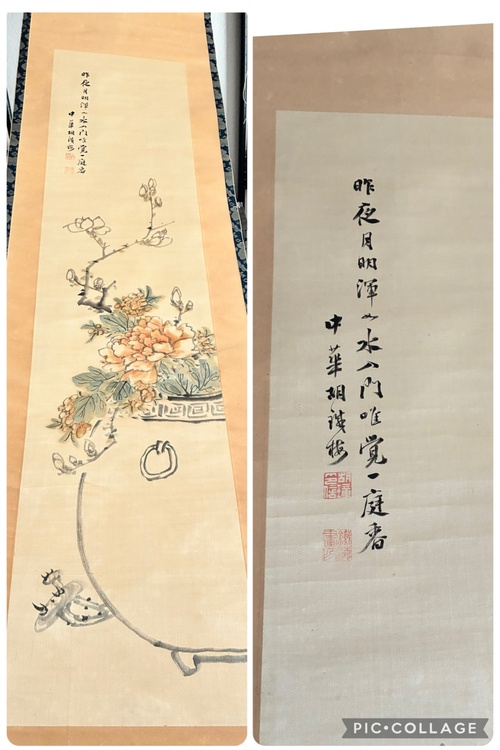 昨夜月明渾似水入門唯覚一庭香
中華胡鐵梅
昨夜月明渾似水入門唯覚一庭香
中華胡鐵梅
PIC•COLLAGE